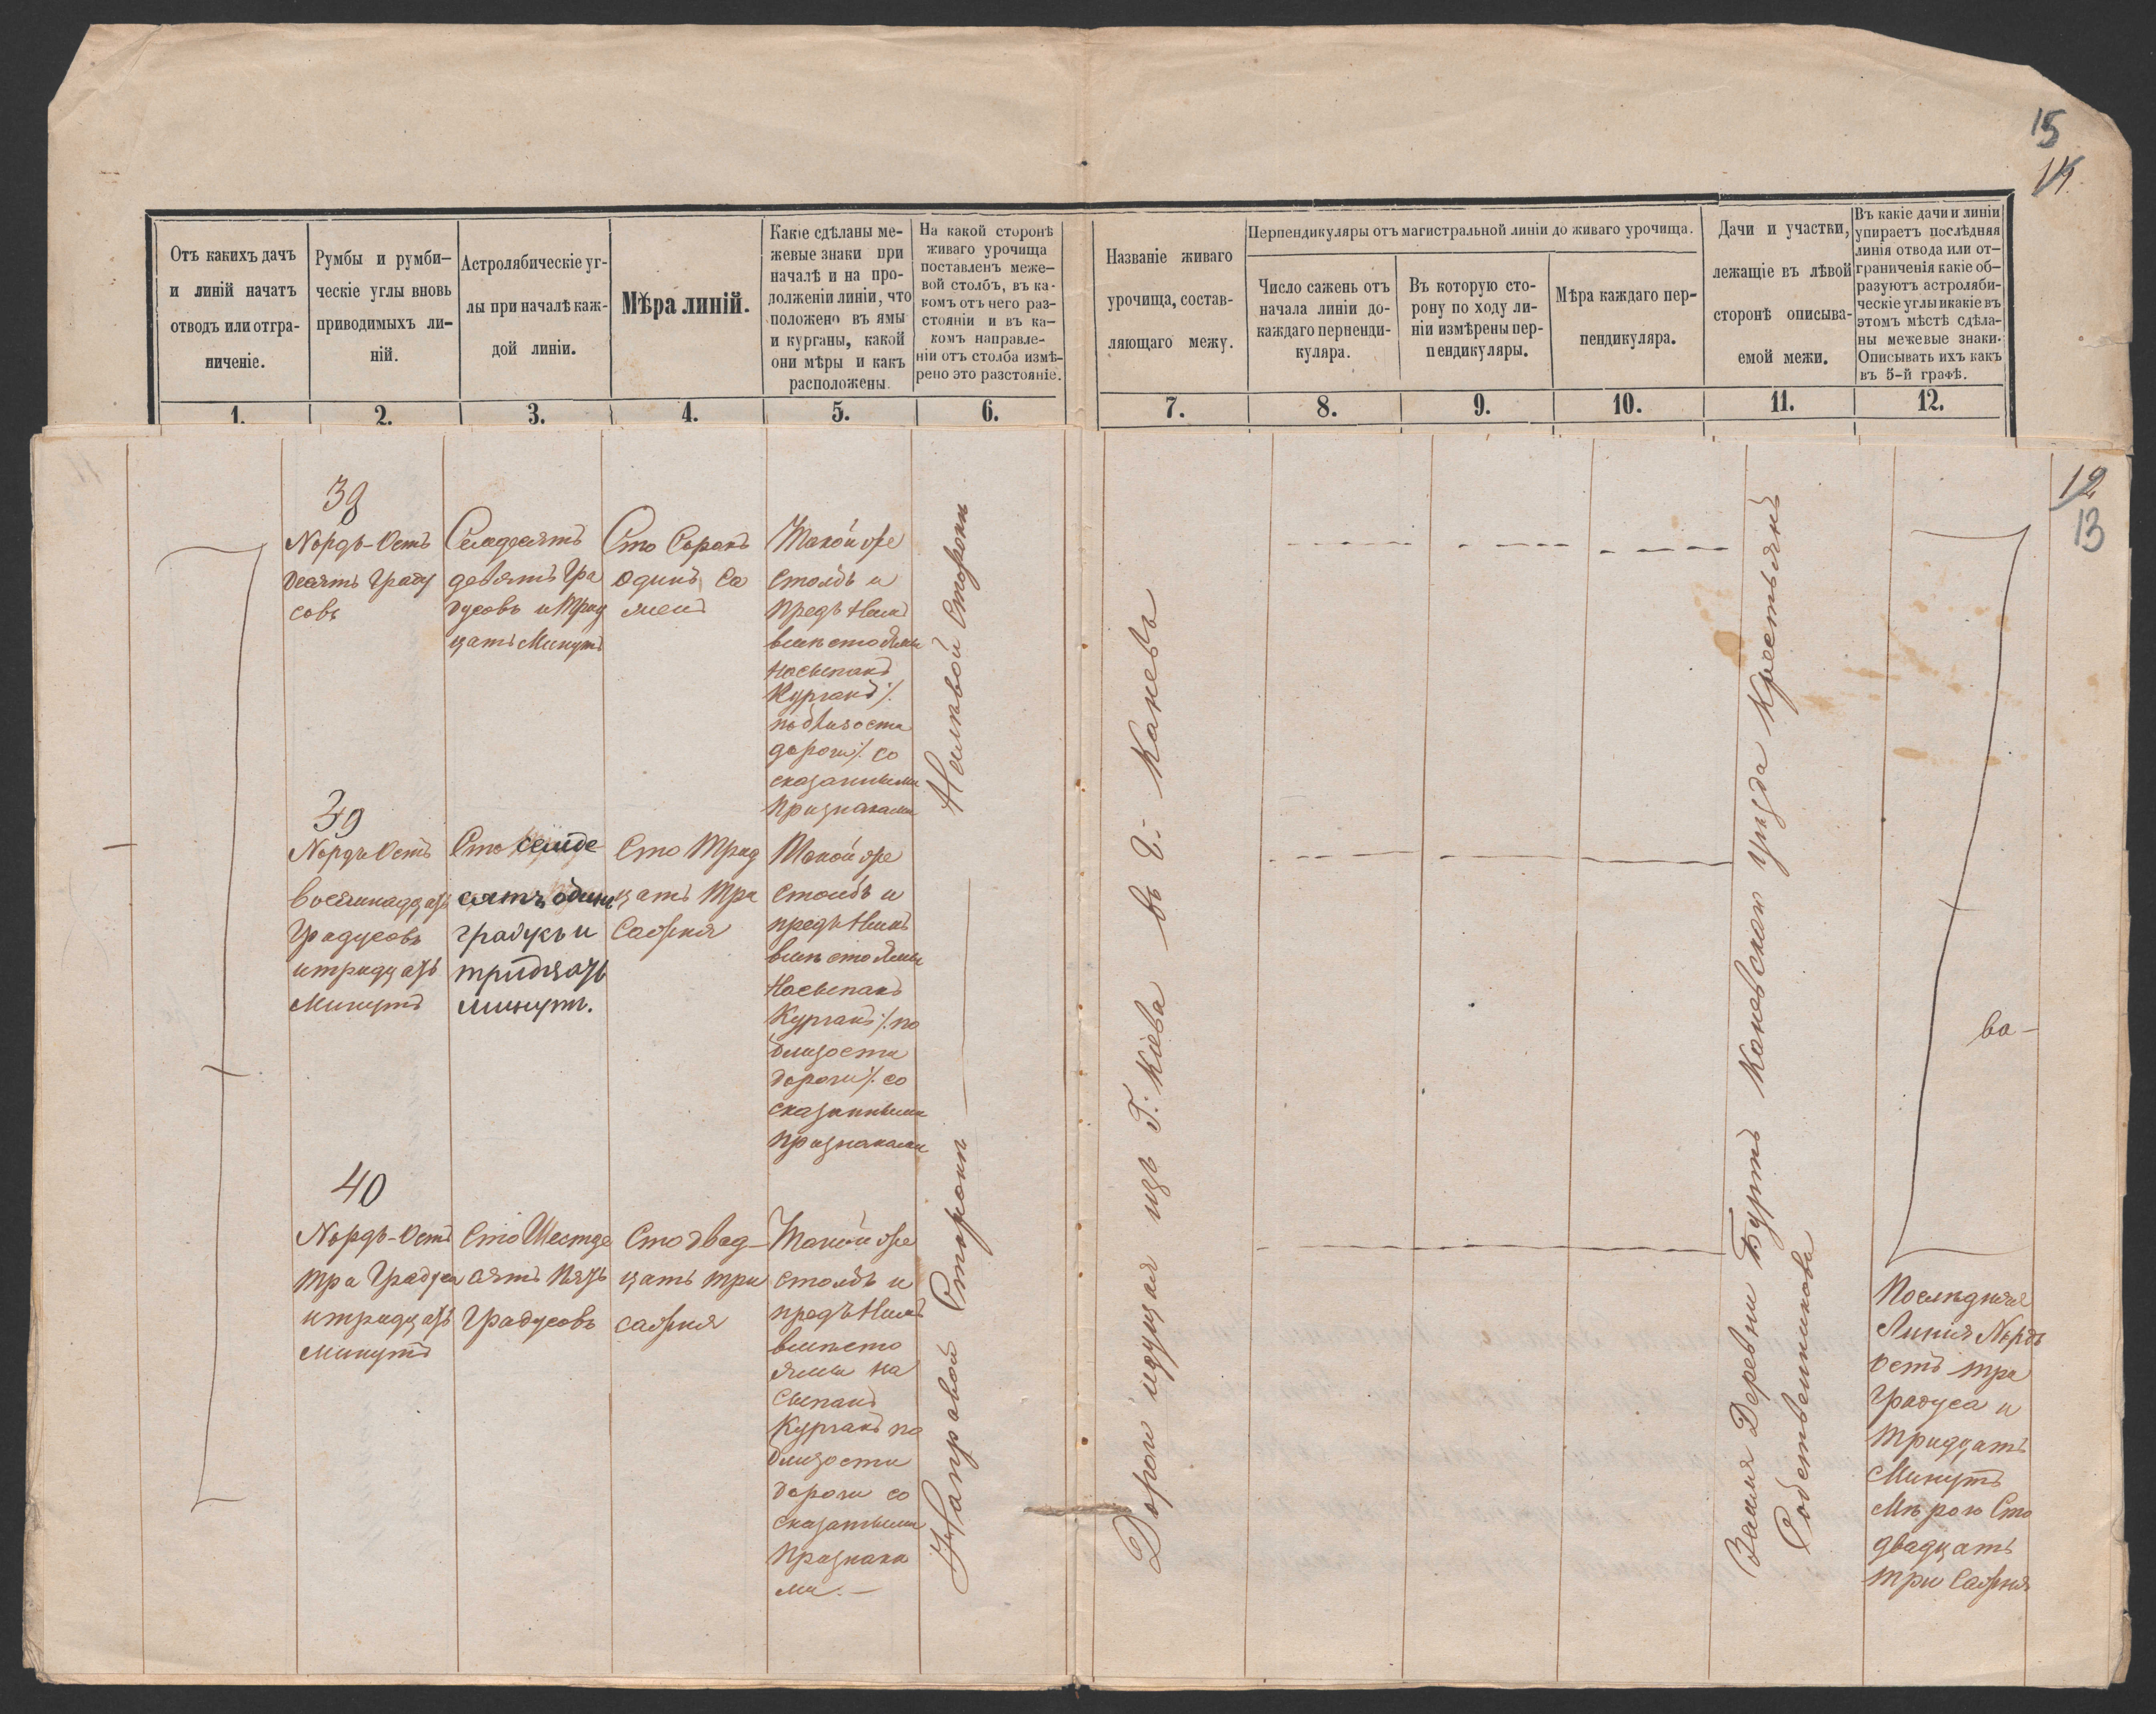 15
14.
Отъ какихъ дачъ
и линій начатъ
отводъ или отгра-
ниченіе.
Румбы и румби-
ческіе углы вновь
приводимыхъ ли-
ній.
Астролябическіе уг-
лы при началѣ каж-
дой линіи.
Мѣра линій.
Какіе сдѣланы ме-
жевые знаки при
началѣ и на про-
долженіи линіи, что
положено въ ямы
и курганы, какой
они мѣры и какъ
расположены.
На какой сторонѣ
живаго урочища
поставленъ меже-
вой столбъ, въ ка-
комъ отъ него раз-
стояніи и въ ка-
комъ направле-
ніи отъ столба измѣ-
рено это разстояніе.
Названіе живаго
урочища, состав-
ляющаго межу.
Перпендикуляры отъ магистральной линіи до живаго урочища.
Число сажень отъ
начала линіи до
каждаго перпенди-
куляра.
Въ которую сто-
рону по ходу ли-
ніи измѣрены пер-
пендикуляры.
Мѣра каждаго пер-
пендикуляра.
Дачи и участки,
лежащіе въ лѣвой
сторонѣ описыва-
емой межи.
Въ какіе дачи и линіи
упираетъ послѣдняя
линія отвода или от-
граниченія какіе об-
разуютъ астроляби-
ческіе углы и какіе въ
этомъ мѣстѣ сдѣла-
ны межевые знаки.
Описывать ихъ какъ
въ 5-й графѣ.
1.
2.
3.
4.
5.
6.
7.
8.
9.
10.
11.
12.
12
13
38
Nордъ-Остъ
десять Граду
совъ
Семдесятъ
девять Гра
дусовъ и Трид
цать Минутъ
Сто Сорокъ
одинъ Са
жень
Такой же
столбъ и
предъ Нимъ
вмѣсто Ямы
Насыпанъ
Курганъ ./.
по близости
дороги ./. со
сказанными
Признаками
39
Nордъ Остъ
восемнадцать
Градусовъ
и тридцать
Минутъ
Сто семде
сятъ одинъ
градусъ и
тридцать
минутъ.
Сто Трид
цать Три
Сажня
Такой же
столбъ и
предъ Нимъ
вмѣсто Ямы
Насыпанъ
Курганъ ./. по
близости
дороги ./. со
сказанными
Признаками
40
Nордъ-Остъ
три Градуса
и тридцать
минутъ
Сто Шестде
сятъ Пять
Градусовъ
Сто двад-
цать три
сажня
Такой же
столбъ и
предъ Нимъ
вмѣсто
ямы на
сыпанъ
Курганъ по
близости
дороги со
сказанными
Признака
ми. —
На правой Сторонѣ — На лѣвой Сторонѣ
Дороги идущая изъ Г: Кіева въ г: Каневъ
Земля Деревни Буртъ Каневскаго уѣзда Крестьянъ
Собственниковъ
ва-
Послѣдняя
Линія Nордъ
Остъ три
Градуса и
тридцать
Минутъ
Мѣрою Сто
двадцать
три Сажня